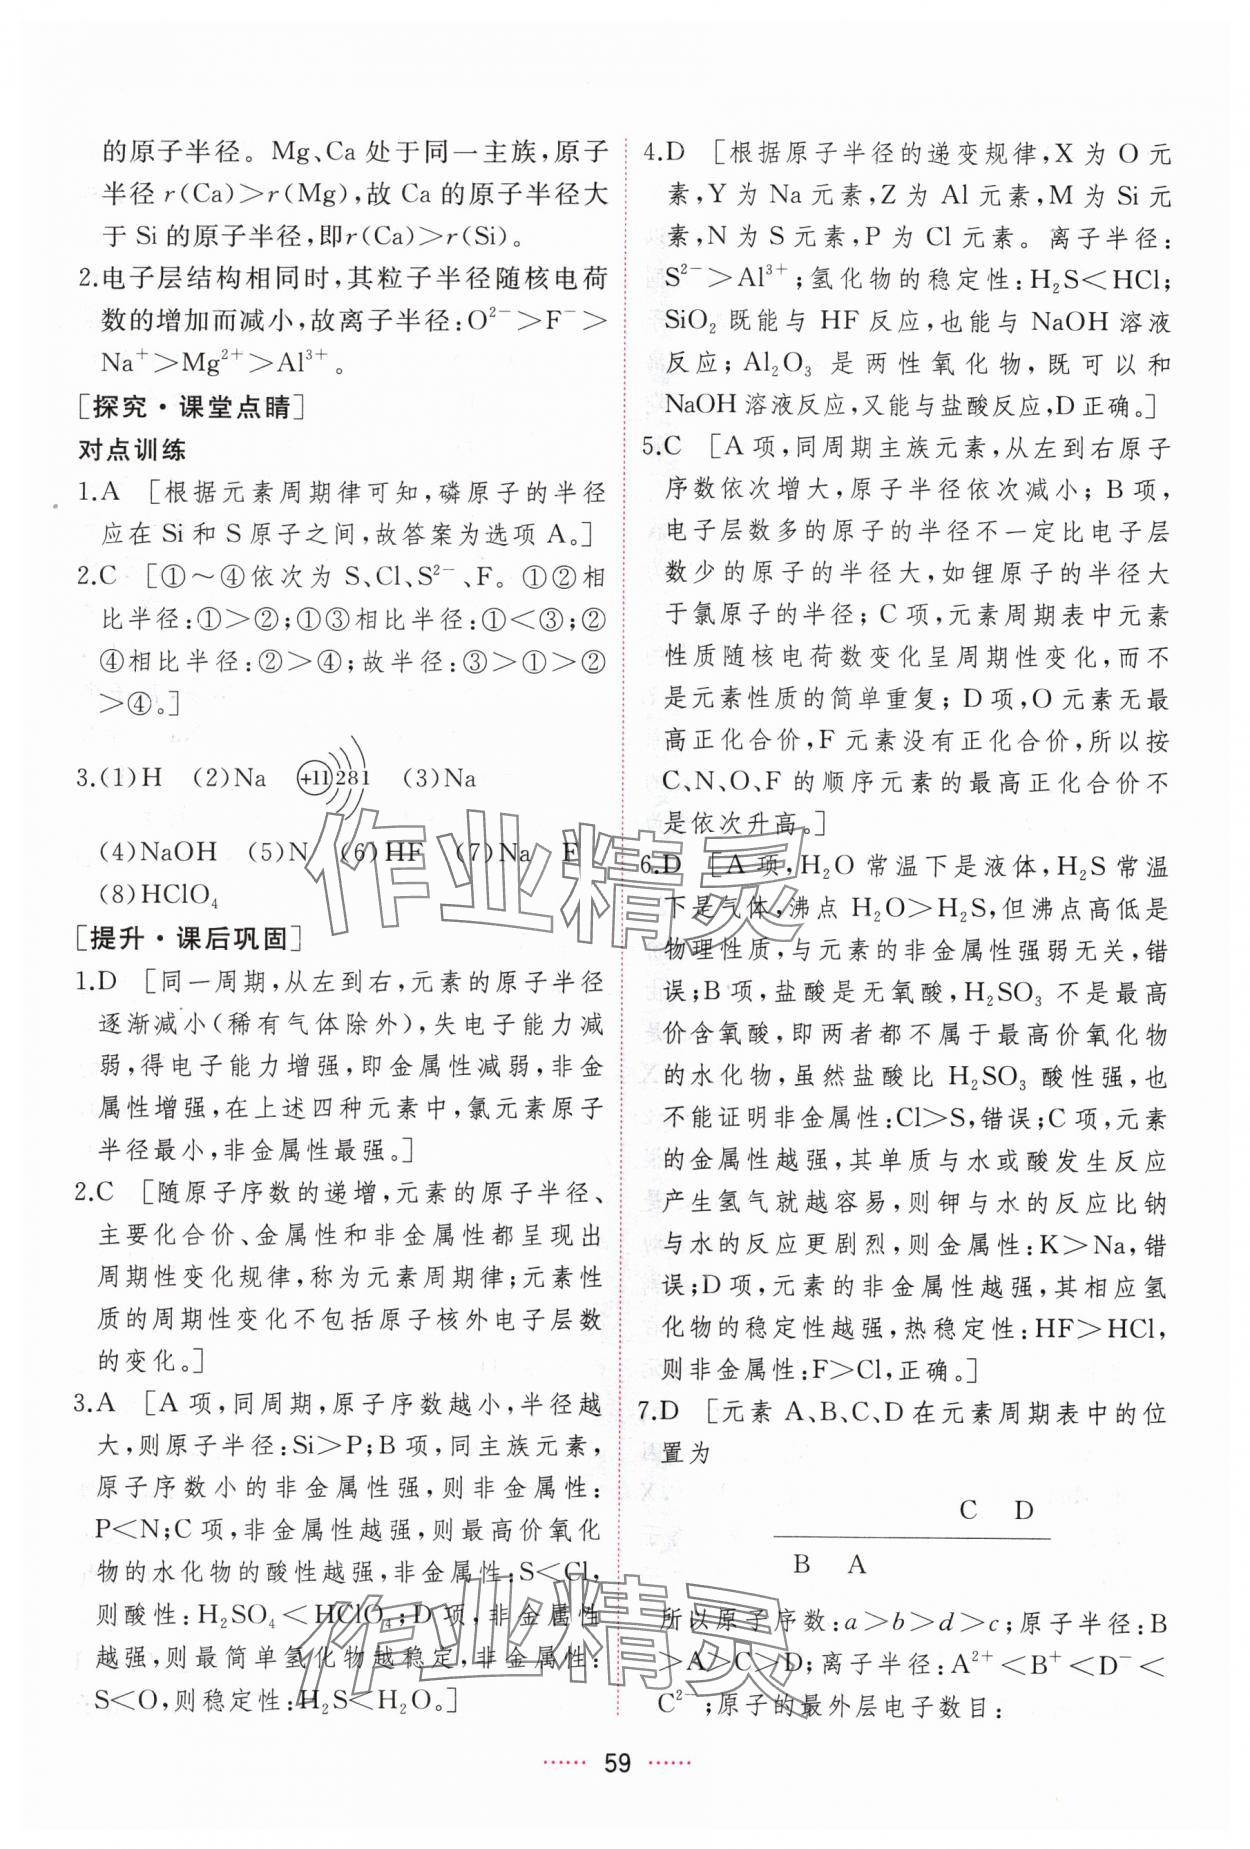 的原子半径。Mg、Ca 处于同一主族，原子
半径 r(Ca)＞r(Mg)，故 Ca 的原子半径大
于 Si 的原子半径，即r(Ca)＞r(Si)。
2.电子层结构相同时，其粒子半径随核电荷
数的增加而减小，故离子半径：O²⁻＞F⁻＞
Na⁺＞Mg²⁺＞Al³⁺。
[探究·课堂点睛]
对点训练
1.A [根据元素周期律可知，磷原子的半径
应在 Si 和 S 原子之间，故答案为选项 A。]
2.C [①～④依次为 S、Cl、S²⁻、F。①②相
比半径：①＞②；①③相比半径：①＜③；②
④相比半径：②＞④；故半径：③＞①＞②
＞④。]
3.(1)H (2)Na +11 2 8 1 (3)Na
(4)NaOH (5)N (6)HF (7)Na F
(8)HClO₄
[提升·课后巩固]
1.D [同一周期，从左到右，元素的原子半径
逐渐减小(稀有气体除外)，失电子能力减
弱，得电子能力增强，即金属性减弱，非金
属性增强，在上述四种元素中，氯元素原子
半径最小，非金属性最强。]
2.C [随原子序数的递增，元素的原子半径、
主要化合价、金属性和非金属性都呈现出
周期性变化规律，称为元素周期律；元素性
质的周期性变化不包括原子核外电子层数
的变化。]
3.A [A 项，同周期，原子序数越小，半径越
大，则原子半径：Si＞P；B 项，同主族元素，
原子序数小的非金属性强，则非金属性：
P＜N；C 项，非金属性越强，最高价氧化
物的水化物的酸性越强，非金属性：S＜Cl，
则酸性：H₂SO₄＜HClO₄；D 项，非金属性
越强，则最简单氢化物越稳定，非金属性：
S＜O，则稳定性：H₂S＜H₂O。]
4.D [根据原子半径的递变规律，X 为 O 元
素，Y 为 Na 元素，Z 为 Al 元素，M 为 Si 元
素，N 为 S 元素，P 为 Cl 元素。离子半径：
S²⁻＞Al³⁺；氢化物的稳定性：H₂S＜HCl；
SiO₂ 既能与 HF 反应，也能与 NaOH 溶液
反应；Al₂O₃ 是两性氧化物，既可以和
NaOH 溶液反应，又能与盐酸反应，D 正确。]
5.C [A 项，同周期主族元素，从左到右原子
序数依次增大，原子半径依次减小；B 项，
电子层数多的原子的半径不一定比电子层
数少的原子的半径大，如锂原子的半径大
于氯原子的半径；C 项，元素周期表中元素
性质随核电荷数变化呈周期性变化，而不
是元素性质的简单重复；D 项，O 元素无最
高正化合价，F 元素没有正化合价，所以按
C、N、O、F 的顺序元素的最高正化合价不
是依次升高。]
6.D [A 项，H₂O 常温下是液体，H₂S 常温
下是气体，沸点 H₂O＞H₂S，但沸点高低是
物理性质，与元素的非金属性强弱无关，错
误；B 项，盐酸是无氧酸，H₂SO₃ 不是最高
价含氧酸，即两者都不属于最高价氧化物
的水化物，虽然盐酸比 H₂SO₃ 酸性强，也
不能证明非金属性：Cl＞S，错误；C 项，元素
的金属性越强，其单质与水或酸发生反应
产生氢气就越容易，则钾与水的反应比钠
与水的反应更剧烈，则金属性：K＞Na，错
误；D 项，元素的非金属性越强，其相应氢
化物的稳定性越强，热稳定性：HF＞HCl，
则非金属性：F＞Cl，正确。]
7.D [元素 A、B、C、D 在元素周期表中的位
置为
C D
B A
所以原子序数：a＞b＞d＞c；原子半径：B
＞A＞C＞D；离子半径：A²⁺＜B⁺＜D⁻＜
C²⁻；原子的最外层电子数目：
…… 59 ……
作业精灵
作业精灵